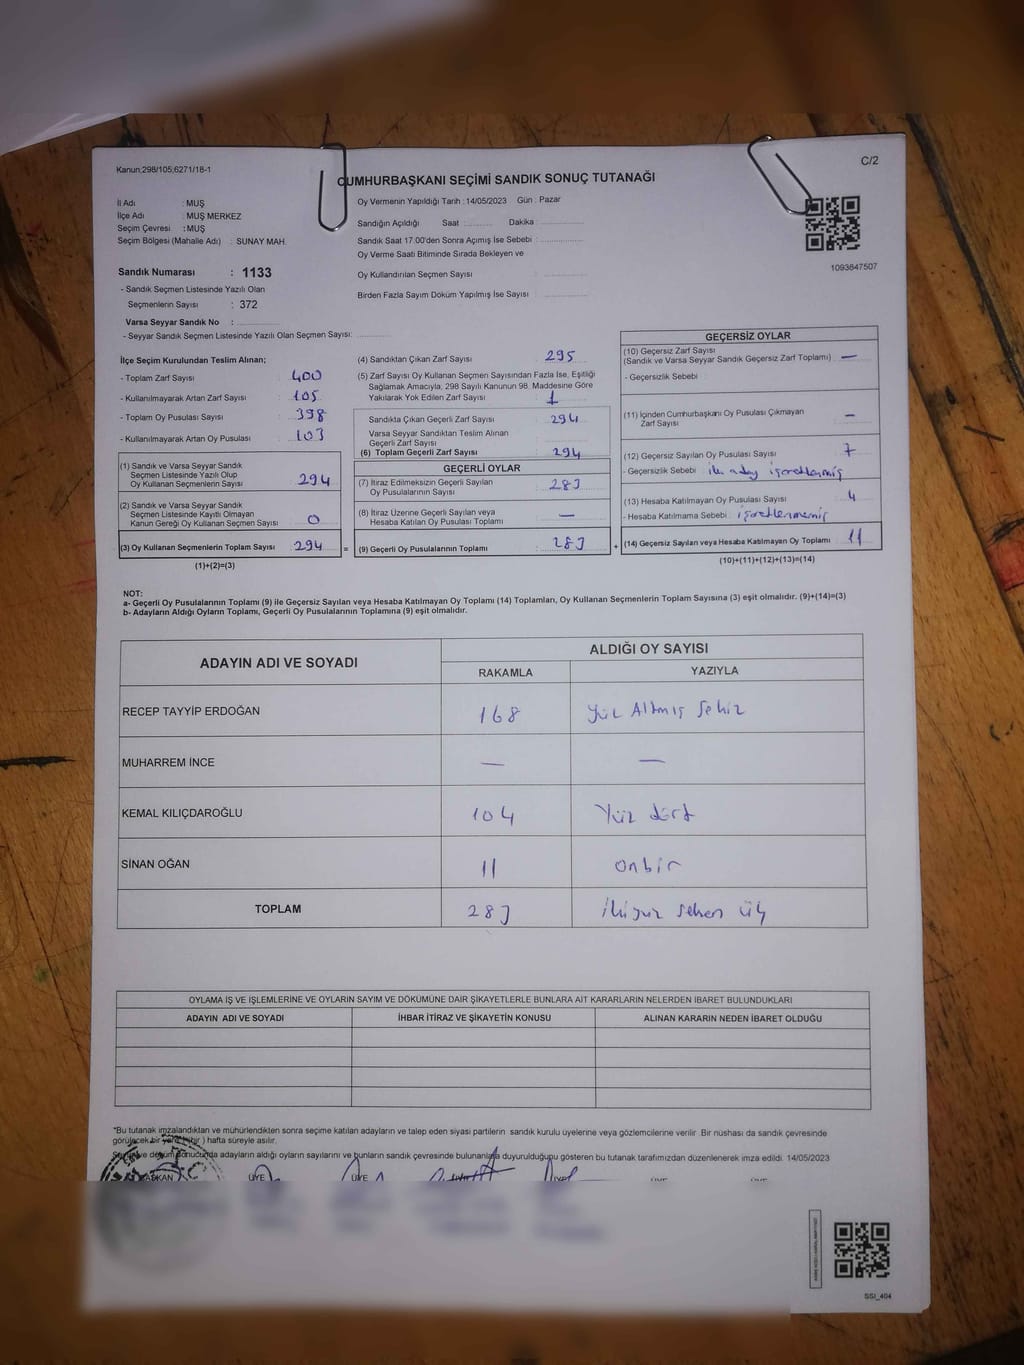 Kanun;298/105;6271/18-1
C/2
CUMHURBAŞKANI SEÇİMİ SANDIK SONUÇ TUTANAĞI
İl Adı : MUŞ
İlçe Adı : MUŞ MERKEZ
Seçim Çevresi : MUŞ
Seçim Bölgesi (Mahalle Adı) : SUNAY MAH.
Sandık Numarası : 1133
- Sandık Seçmen Listesinde Yazılı Olan
Seçmenlerin Sayısı : 372
Varsa Seyyar Sandık No :
- Seyyar Sandık Seçmen Listesinde Yazılı Olan Seçmen Sayısı:
Oy Vermenin Yapıldığı Tarih : 14/05/2023 Gün : Pazar
Sandığın Açıldığı Saat : Dakika :
Sandık Saat 17.00'den Sonra Açımış İse Sebebi :
Oy Verme Saati Bitiminde Sırada Bekleyen ve
Oy Kullandırılan Seçmen Sayısı :
Birden Fazla Sayım Döküm Yapılmış İse Sayısı :
1093847507
İlçe Seçim Kurulundan Teslim Alınan;
- Toplam Zarf Sayısı : 400
- Kullanılmayarak Artan Zarf Sayısı : 105
- Toplam Oy Pusulası Sayısı : 398
- Kullanılmayarak Artan Oy Pusulası : 103
(1) Sandık ve Varsa Seyyar Sandık
Seçmen Listesinde Yazılı Olup
Oy Kullanan Seçmenlerin Sayısı : 294
(2) Sandık ve Varsa Seyyar Sandık
Seçmen Listesinde Kayıtlı Olmayan
Kanun Gereği Oy Kullanan Seçmen Sayısı : 0
(3) Oy Kullanan Seçmenlerin Toplam Sayısı : 294 =
(1)+(2)=(3)
(4) Sandıktan Çıkan Zarf Sayısı : 295
(5) Zarf Sayısı Oy Kullanan Seçmen Sayısından Fazla İse, Eşitliği
Sağlamak Amacıyla, 298 Sayılı Kanunun 98. Maddesine Göre
Yakılarak Yok Edilen Zarf Sayısı : 1
Sandıkta Çıkan Geçerli Zarf Sayısı : 294
Varsa Seyyar Sandıktan Teslim Alınan
Geçerli Zarf Sayısı
(6) Toplam Geçerli Zarf Sayısı : 294
GEÇERLİ OYLAR
(7) İtiraz Edilmeksizin Geçerli Sayılan
Oy Pusulalarının Sayısı : 283
(8) İtiraz Üzerine Geçerli Sayılan veya
Hesaba Katılan Oy Pusulası Toplamı : —
(9) Geçerli Oy Pusulalarının Toplamı : 283 +
GEÇERSİZ OYLAR
(10) Geçersiz Zarf Sayısı
(Sandık ve Varsa Seyyar Sandık Geçersiz Zarf Toplamı) : —
- Geçersizlik Sebebi :
(11) İçinden Cumhurbaşkanı Oy Pusulası Çıkmayan
Zarf Sayısı : —
(12) Geçersiz Sayılan Oy Pusulası Sayısı : 7
- Geçersizlik Sebebi : iki aday işaretlenmiş
(13) Hesaba Katılmayan Oy Pusulası Sayısı : 4
- Hesaba Katılmama Sebebi : işaretlenmemiş
(14) Geçersiz Sayılan veya Hesaba Katılmayan Oy Toplamı : 11
(10)+(11)+(12)+(13)=(14)
NOT:
a- Geçerli Oy Pusulalarının Toplamı (9) ile Geçersiz Sayılan veya Hesaba Katılmayan Oy Toplamı (14) Toplamları, Oy Kullanan Seçmenlerin Toplam Sayısına (3) eşit olmalıdır. (9)+(14)=(3)
b- Adayların Aldığı Oyların Toplamı, Geçerli Oy Pusulalarının Toplamına (9) eşit olmalıdır.
ADAYIN ADI VE SOYADI
ALDIĞI OY SAYISI
RAKAMLA YAZIYLA
RECEP TAYYİP ERDOĞAN 168 Yüz Altmış Sekiz
MUHARREM İNCE — —
KEMAL KILIÇDAROĞLU 104 Yüz dört
SİNAN OĞAN 11 onbir
TOPLAM 283 İkiyüz seksen üç
OYLAMA İŞ VE İŞLEMLERİNE VE OYLARIN SAYIM VE DÖKÜMÜNE DAİR ŞİKAYETLERLE BUNLARA AİT KARARLARIN NELERDEN İBARET BULUNDUKLARI
ADAYIN ADI VE SOYADI İHBAR İTİRAZ VE ŞİKAYETİN KONUSU ALINAN KARARIN NEDEN İBARET OLDUĞU
*Bu tutanak imzalandıktan ve mühürlendikten sonra seçime katılan adayların ve talep eden siyasi partilerin sandık kurulu üyelerine veya gözlemcilerine verilir. Bir nüshası da sandık çevresinde
görülecek bir yere (bir) hafta süreyle asılır.
döküm sonucunda adayların aldığı oyların sayılarını ve bunların sandık çevresinde bulunanlara duyurulduğunu gösteren bu tutanak tarafımızdan düzenlenerek imza edildi. 14/05/2023
BAŞKAN ÜYE ÜYE ÜYE ÜYE ÜYE
SSI_404